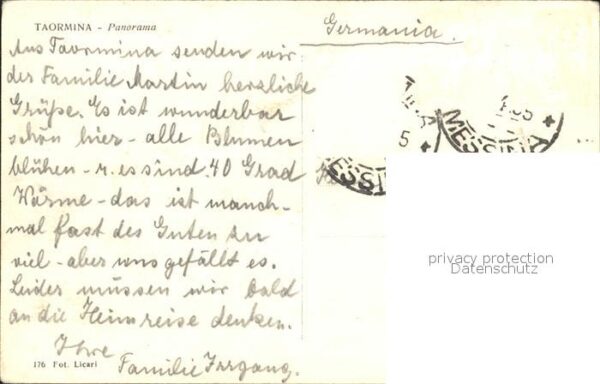 TAORMINA - Panorama
Germania.
Aus Taormina senden wir
der Familie Martin herzliche
Grüße. Es ist wunderbar
schön hier - alle Blumen
blühen - u. es sind 40 Grad
Wärme - das ist manch-
mal fast des Guten zu
viel - aber uns gefällt es.
Leider müssen wir bald
an die Heimreise denken.
Ihre
Familie Irrgang.
176 Fot. Licari
MESSINA
5
privacy protection
Datenschutz